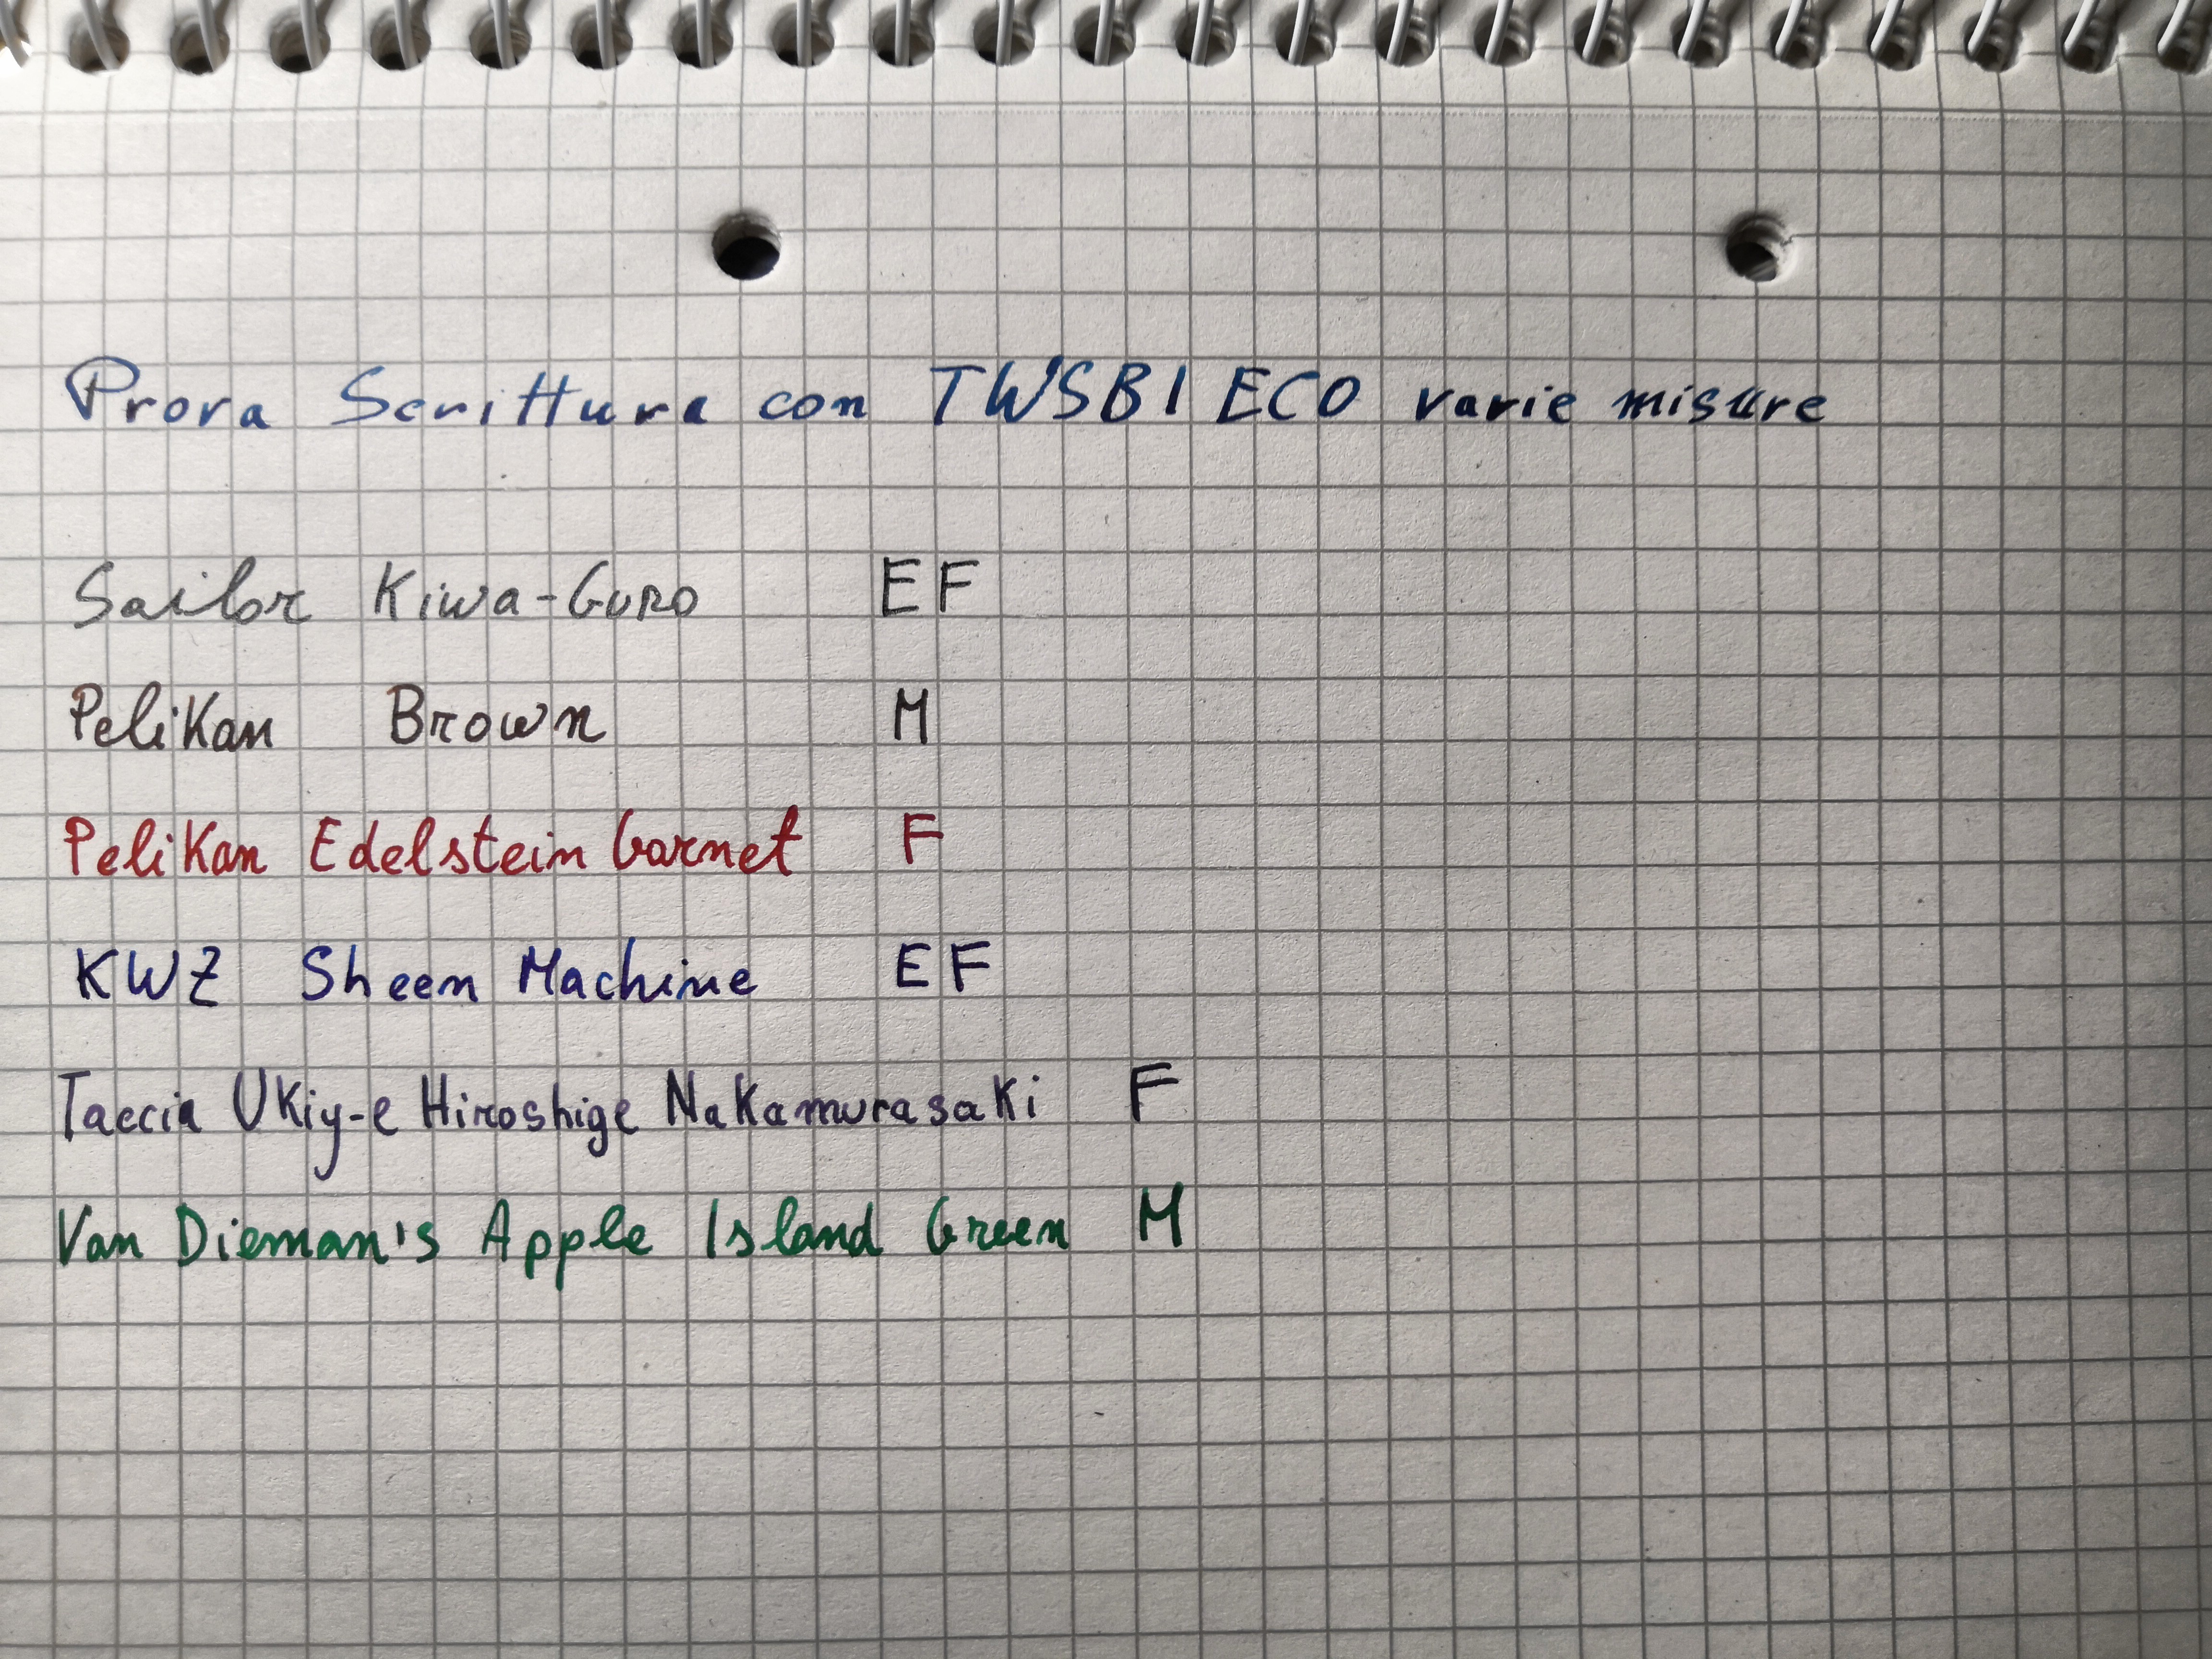 Prova Scrittura con TWSBI ECO varie misure
Sailor Kiwa-Guro EF
Pelikan Brown M
Pelikan Edelstein Garnet F
KWZ Sheen Machine EF
Taccia Ukiy-e Hiroshige Nakamurasaki F
Van Dieman's Apple Island Green M